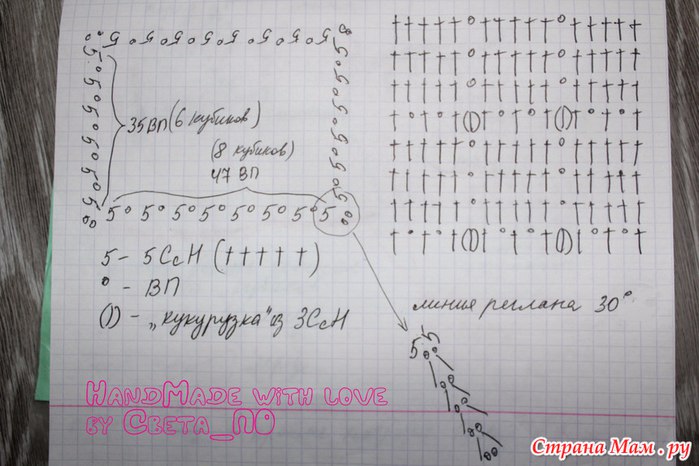 5 ° 5 ° 5 ° 5 ° 5 ° 5 ° 5 ° 5
35 ВП (6 кубиков)
(8 кубиков)
47 ВП
5 ° 5 ° 5 ° 5 ° 5 ° 5 ° 5 ° 5
5 - 5СсН (†††††)
° - ВП
(|) - „кукурузка" из 3СсН
линия реглана 30°
5 5
HandMade with love
by Света_ПО
Страна Мам.ру